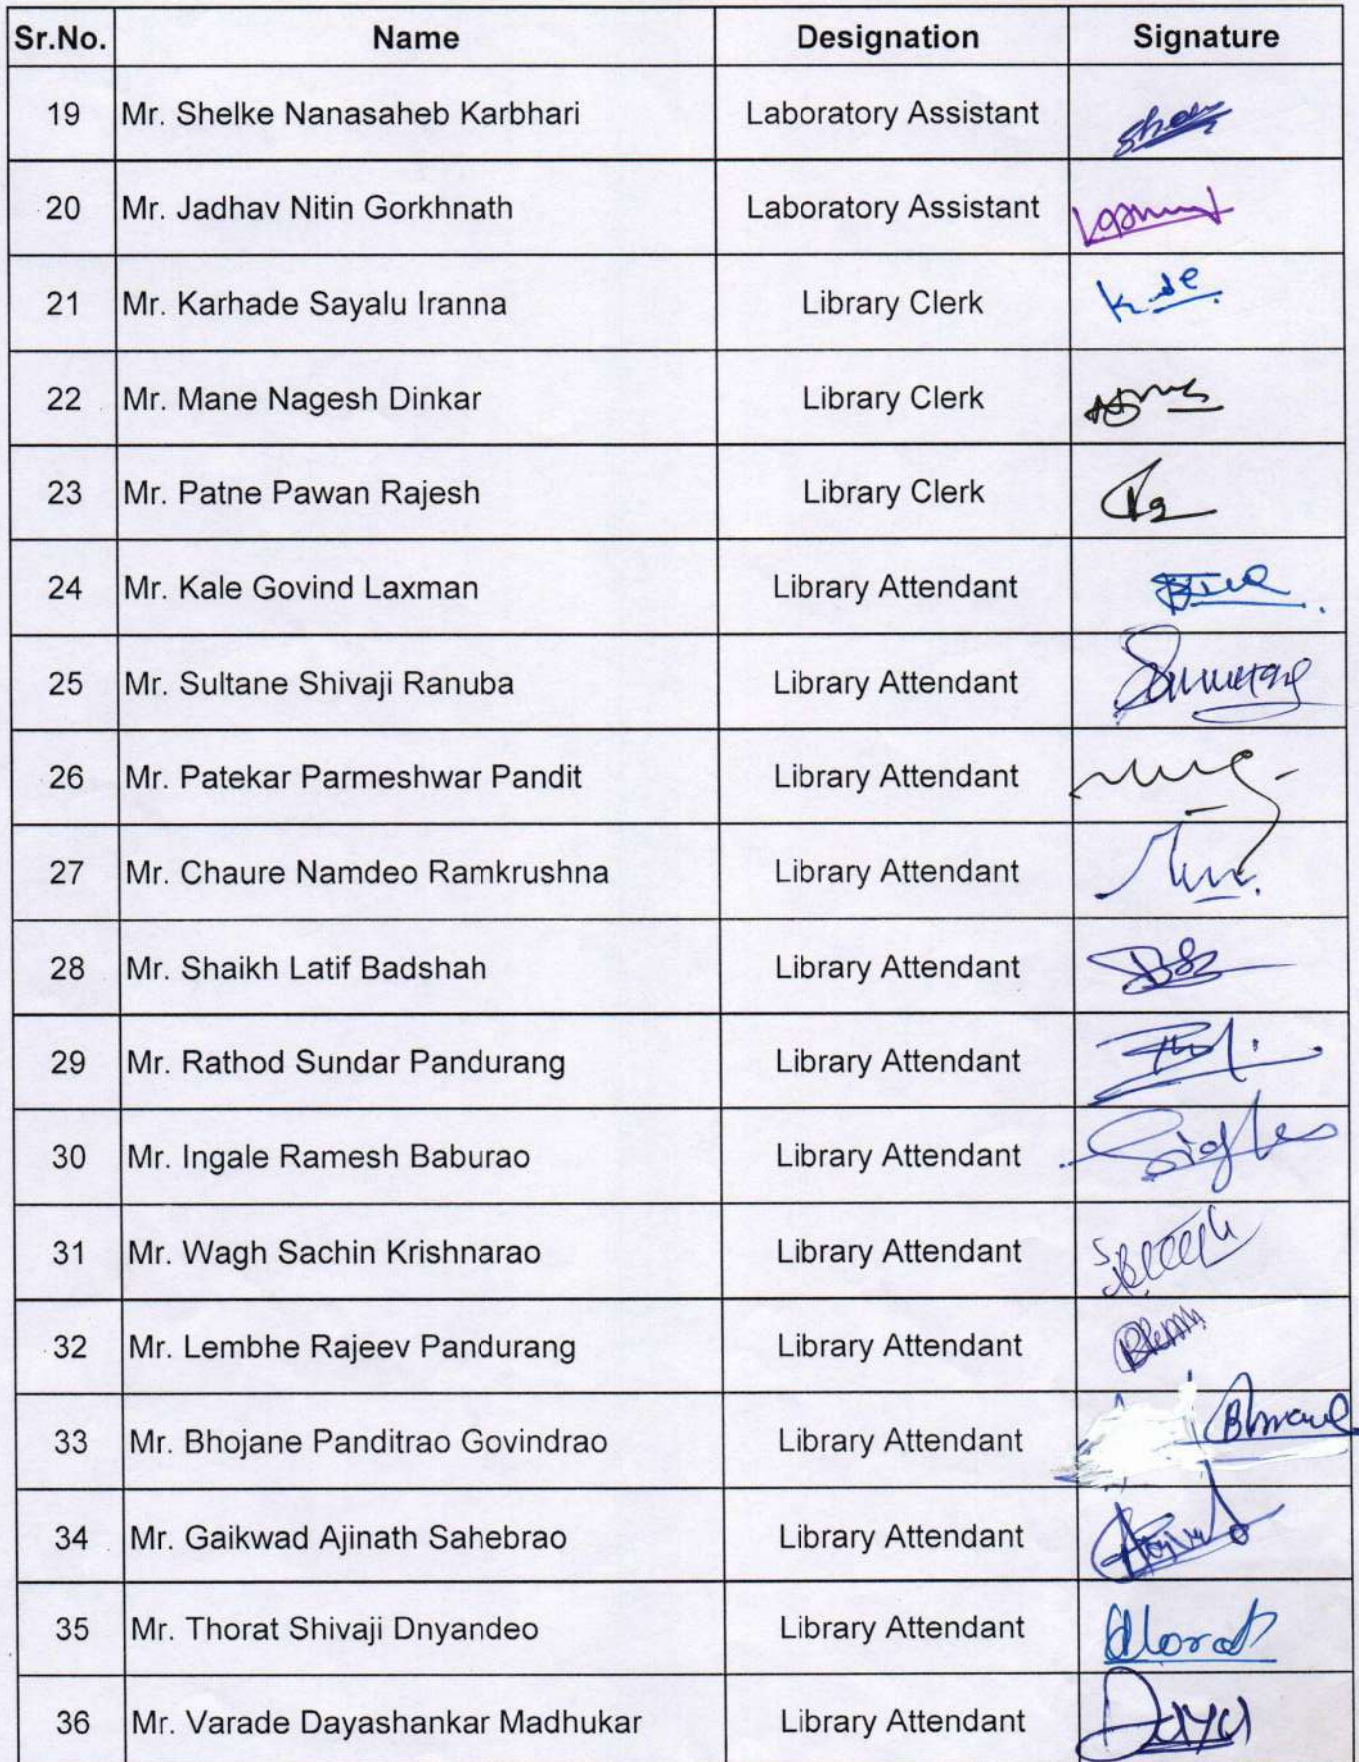 Sr.No. Name Designation Signature
19 Mr. Shelke Nanasaheb Karbhari Laboratory Assistant
20 Mr. Jadhav Nitin Gorkhnath Laboratory Assistant
21 Mr. Karhade Sayalu Iranna Library Clerk
22 Mr. Mane Nagesh Dinkar Library Clerk
23 Mr. Patne Pawan Rajesh Library Clerk
24 Mr. Kale Govind Laxman Library Attendant
25 Mr. Sultane Shivaji Ranuba Library Attendant
26 Mr. Patekar Parmeshwar Pandit Library Attendant
27 Mr. Chaure Namdeo Ramkrushna Library Attendant
28 Mr. Shaikh Latif Badshah Library Attendant
29 Mr. Rathod Sundar Pandurang Library Attendant
30 Mr. Ingale Ramesh Baburao Library Attendant
31 Mr. Wagh Sachin Krishnarao Library Attendant
32 Mr. Lembhe Rajeev Pandurang Library Attendant
33 Mr. Bhojane Panditrao Govindrao Library Attendant
34 Mr. Gaikwad Ajinath Sahebrao Library Attendant
35 Mr. Thorat Shivaji Dnyandeo Library Attendant
36 Mr. Varade Dayashankar Madhukar Library Attendant